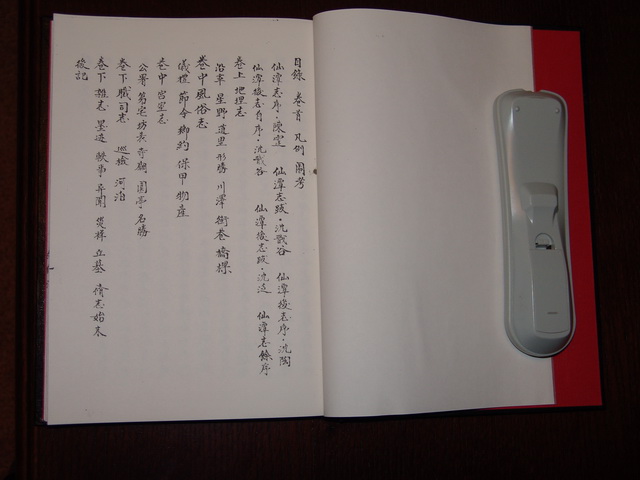 目錄 卷首 凡例 圖考
仙潭志序·陳霆 仙潭志跋·沈戩谷 仙潭後志序·沈陶
仙潭後志自序·沈戩谷 仙潭後志跋·沈 仙潭志餘序
卷上 地理志
沿革 星野 道里 形勝 川澤 街巷 橋樑
卷中風俗志
儀禮 節令 鄉約 保甲 物產
卷中 宮室志
公署 第宅 坊表 寺廟 園亭 名勝
卷下 職司志 巡檢 河泊
卷下 雜志 墨迹 軼事 災祥 丘墓 脩志始末
後記